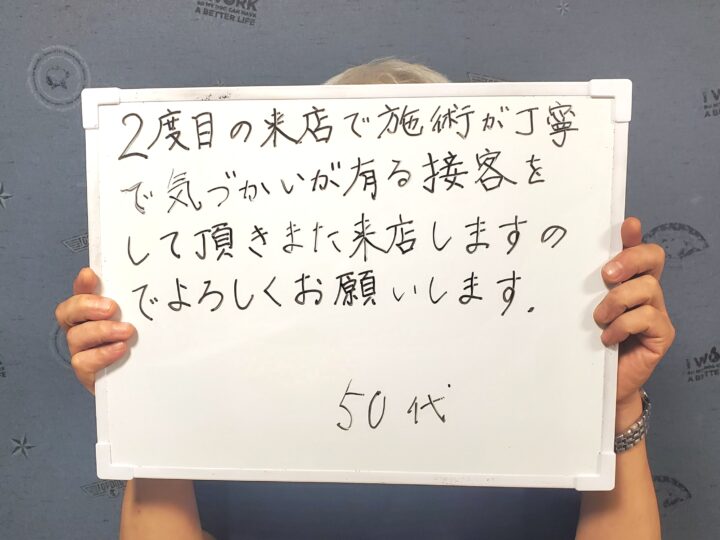 2度目の来店で施術が丁寧
で気づかいが有る接客を
して頂きまた来店しますの
でよろしくお願いします.
50代
WORK
A BETTER LIFE
I W
A BETTE